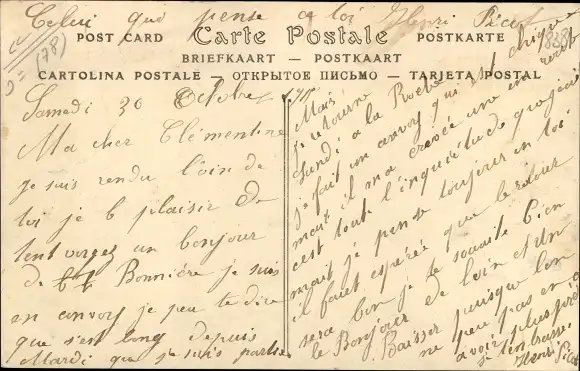 Celui qui pense a toi Henri Picot
(78)
838
POST CARD Carte Postale POSTKARTE
BRIEFKAART — POSTKAART
CARTOLINA POSTALE — ОТКРЫТОЕ ПИСЬМО — TARJETA POSTAL
Samedi 30 Octobre
Ma cher Clémentine
je suis rendu loin de
toi je le plaisir de
tent voyez un bonjour
de Bonniére je suis
en anvoy je peu te dire
que s'en long depuis
Mardi que je suis partie
Mais
je retourne
Lundi a la Roche
je fait un anvoy qui est chique
mait il ma creveé une en rout
cest tout l'inquiétude que jai
mait je pense toujour en toi
il faut esperée que le retour
sera bon je te souaite bien
le Bonjour de loin et un
Baisser puisque lon
ne peu pas en
avoir plus pré
je tenbrasse
Henri Picot